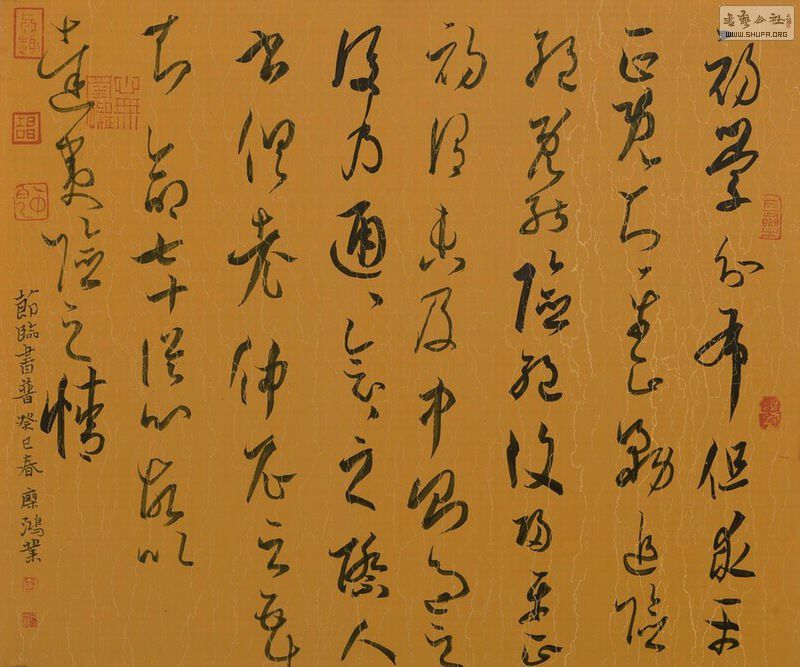 初學分布但求平
正既知平正務追險
絕既能險絕復歸平正
初謂未及中則過之
後乃通〻會〻之際人
書俱老仲尼云五十
知命七十從心故以
達夷險之情
節臨書普 癸巳春 鴻業
書藝公社
WWW.SHUFA.ORG